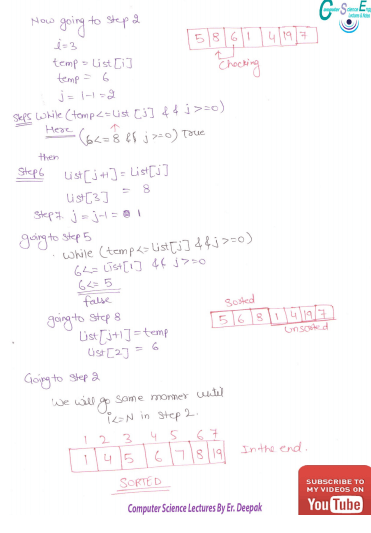 Computer Science Engg
Lectures & Notes
Now going to Step 2
5 8 6 1 4 19 7
Checking
i=3
temp = List[i]
temp = 6
j = i-1 = 2
Step5 While (temp<=List [j] && j>=0)
Here (6<=8 && j>=0) True
then
Step6 List[j+1] = List[j]
List[3] = 8
Step 7. j = j-1 = 1
going to Step 5
while (temp<=List[j] && j>=0)
6<= List[1] && j>=0
6<=5
false
going to Step 8
List[j+1] = temp
List[2] = 6
Sorted
5 6 8 1 4 19 7
Unsorted
Going to Step 2
We will go same manner until
i<=N in Step 2.
1 2 3 4 5 6 7
1 4 5 6 7 8 19
In the end.
SORTED
Computer Science Lectures By Er. Deepak
SUBSCRIBE TO
MY VIDEOS ON
YouTube